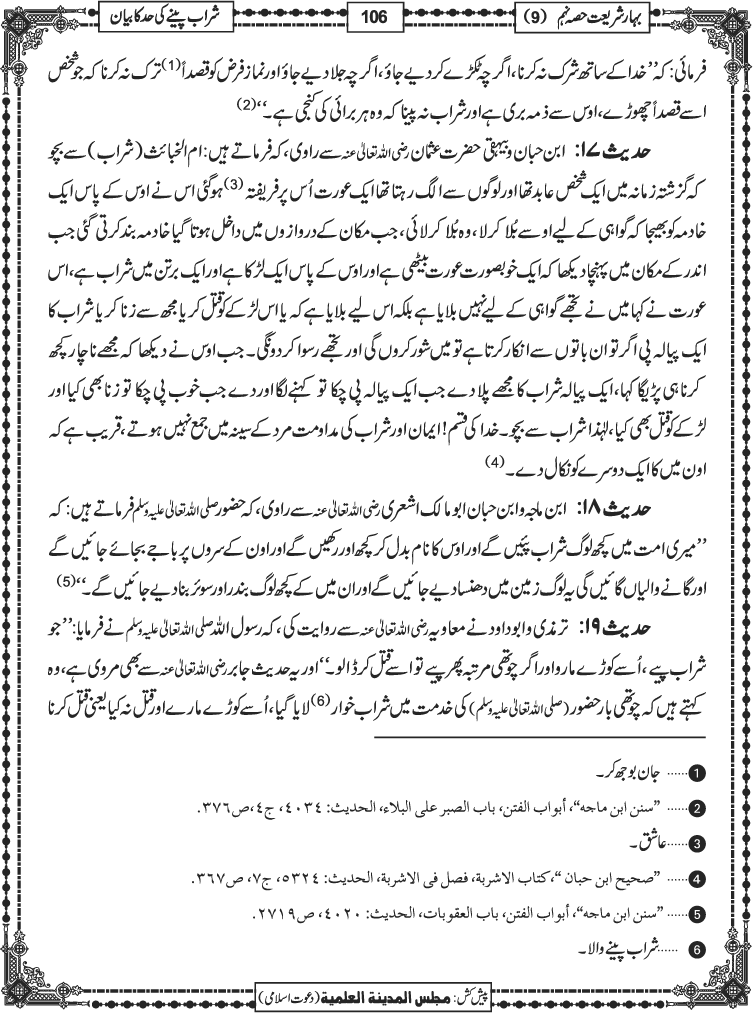 بہار شریعت حصہ نہم (9)
106
شراب پینے کی حد کا بیان
فرمائی: کہ ’’خدا کے ساتھ شرک نہ کرنا، اگرچہ ٹکڑے کر دیے جاؤ، اگرچہ جلا دیے جاؤ اور نماز فرض کو قصداً(1) ترک نہ کرنا کہ جو شخص
اسے قصداً چھوڑے، اوس سے ذمہ بری ہے اور شراب نہ پینا کہ وہ ہر برائی کی کنجی ہے۔‘‘(2)
حدیث ۱۷: ابن حبان و بیہقی حضرت عثمان رضی اللہ تعالیٰ عنہ سے راوی، کہ فرماتے ہیں: ام الخبائث (شراب) سے بچو
کہ گزشتہ زمانہ میں ایک شخص عابد تھا اور لوگوں سے الگ رہتا تھا ایک عورت اُس پر فریفتہ(3) ہوگئی اس نے اوس کے پاس ایک
خادمہ کو بھیجا کہ گواہی کے لیے اوسے بُلا کر لا، وہ بُلا کر لائی، جب مکان کے دروازوں میں داخل ہوتا گیا خادمہ بند کرتی گئی جب
اندر کے مکان میں پہنچا دیکھا کہ ایک خوبصورت عورت بیٹھی ہے اور اوس کے پاس ایک لڑکا ہے اور ایک برتن میں شراب ہے، اس
عورت نے کہا میں نے تجھے گواہی کے لیے نہیں بلایا ہے بلکہ اس لیے بلایا ہے کہ یا اس لڑکے کو قتل کر یا مجھ سے زنا کر یا شراب کا
ایک پیالہ پی اگر تو ان باتوں سے انکار کرتا ہے تو میں شور کروں گی اور تجھے رسوا کر دونگی۔ جب اوس نے دیکھا کہ مجھے ناچار کچھ
کرنا ہی پڑیگا کہا، ایک پیالہ شراب کا مجھے پلا دے جب ایک پیالہ پی چکا تو کہنے لگا اور دے جب خوب پی چکا تو زنا بھی کیا اور
لڑکے کو قتل بھی کیا، لہٰذا شراب سے بچو۔ خدا کی قسم! ایمان اور شراب کی مداومت مرد کے سینہ میں جمع نہیں ہوتے، قریب ہے کہ
اون میں کا ایک دوسرے کو نکال دے۔(4)
حدیث ۱۸: ابن ماجہ و ابن حبان ابو مالک اشعری رضی اللہ تعالیٰ عنہ سے راوی، کہ حضور صلی اللہ تعالیٰ علیہ وسلم فرماتے ہیں: کہ
’’میری امت میں کچھ لوگ شراب پئیں گے اور اوس کا نام بدل کر کچھ اور رکھیں گے اور اون کے سروں پر باجے بجائے جائیں گے
اور گانے والیاں گائیں گی یہ لوگ زمین میں دھنسا دیے جائیں گے اور ان میں کے کچھ لوگ بندر اور سوئر بنا دیے جائیں گے۔‘‘(5)
حدیث ۱۹: ترمذی و ابوداود نے معاویہ رضی اللہ تعالیٰ عنہ سے روایت کی، کہ رسول اللہ صلی اللہ تعالیٰ علیہ وسلم نے فرمایا: ’’جو
شراب پیے، اُسے کوڑے مارو اور اگر چوتھی مرتبہ پھر پیے تو اسے قتل کر ڈالو۔‘‘ اور یہ حدیث جابر رضی اللہ تعالیٰ عنہ سے بھی مروی ہے، وہ
کہتے ہیں کہ چوتھی بار حضور (صلی اللہ تعالیٰ علیہ وسلم) کی خدمت میں شراب خوار(6) لایا گیا، اُسے کوڑے مارے اور قتل نہ کیا یعنی قتل کرنا
1 ...... جان بوجھ کر۔
2 ...... ’’سنن ابن ماجه‘‘، أبواب الفتن، باب الصبر علی البلاء، الحدیث: ٤٠٣٤، ج٤، ص٣٧٦.
3 ...... عاشق۔
4 ...... ’’صحیح ابن حبان‘‘، کتاب الاشربة، فصل فی الاشربة، الحدیث: ٥٣٢٤، ج٧، ص٣٦٧.
5 ...... ’’سنن ابن ماجه‘‘، أبواب الفتن، باب العقوبات، الحدیث: ٤٠٢٠، ص٢٧١٩.
6 ...... شراب پینے والا۔
پیش کش: مجلس المدینة العلمیة (دعوت اسلامی)